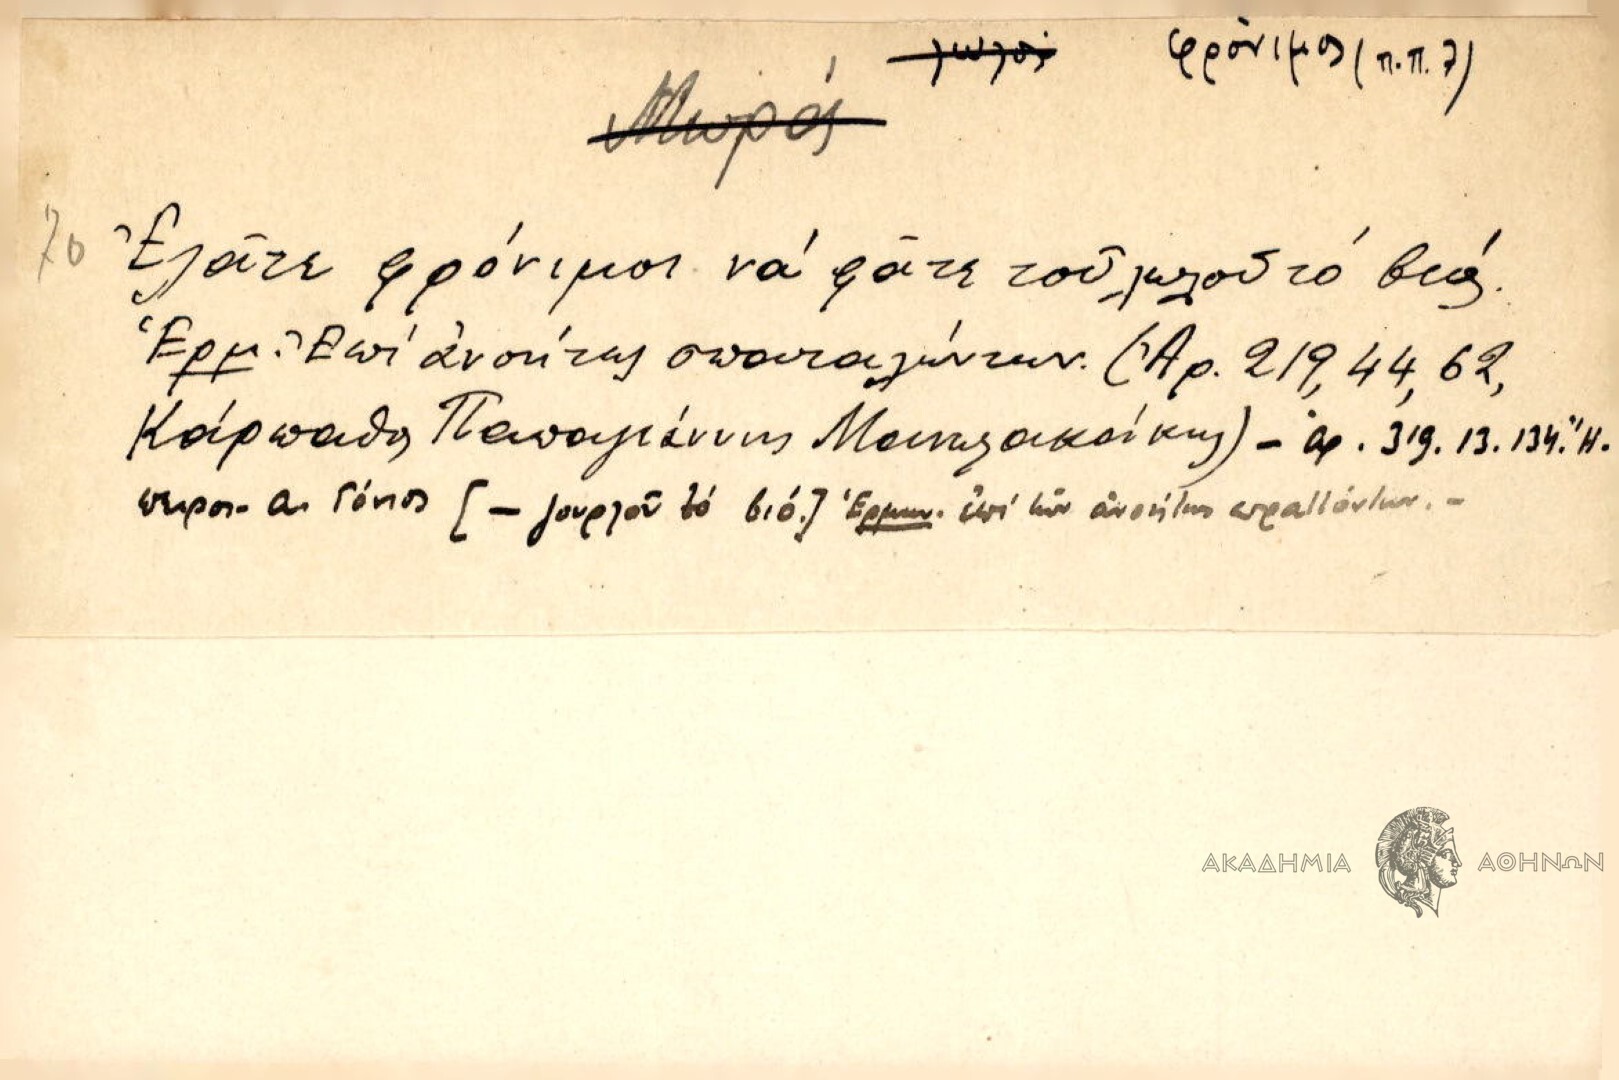 λωλός φρόνιμος (π.π. 7)
Μωρός
70 Ἐλᾶτε φρόνιμοι νά φᾶτε τοῦ λωλοῦ τό βιός.
Ἑρμ. Ἐπί ἀνοήτως σπαταλώντων. (Ἀρ. 219, 44, 62,
Κάρπαθος Παπαγιάννης Μανωλακάκης) – ἀρ. 319. 13. 134. Ἤ-
πειρος – [– λουρλοῦ τό βιό.] Ἑρμην. ἐπί τῶν ἀνοήτως πραττόντων. –
ΑΚΑΔΗΜΙΑ ΑΘΗΝΩΝ